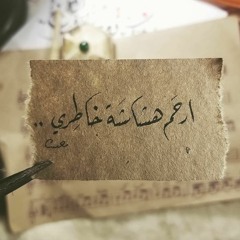 ارحَم هشاشَة خاطِري ..